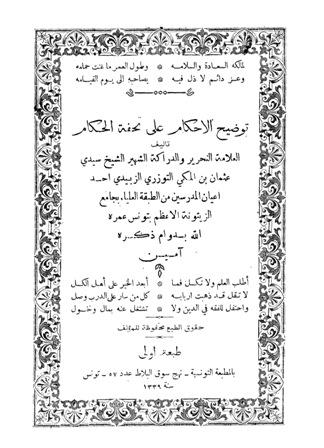 لمالكه السعادة والسلامه * وطول العمر ما غنت حمامه
وعز دائم لا ذل فيه * يصاحبه الى يوم القيامه
توضيح الاحكام على تحفة الحكام
تاليف
العلامة النحرير والدراكة الشهير الشيخ سيدي
عثمان بن المكي التوزري الزبيدي احد
اعيان المدرسين من الطبقة العليا بجامع
الزيتونة الاعظم بتونس عمره
الله بدوام ذكره
آمين
أطلب العلم ولا تكسل فما * أبعد الخير على أهل الكسل
لا تقل قد ذهبت اربابه * كل من سار على الدرب وصل
واحتفل للفقه في الدين ولا * تشتغل عنه بمال وخول
حقوق الطبع محفوظة للمؤلف
طبعة اولى
بالمطبعة التونسية - نهج سوق البلاط عدد ٥٧ - تونس
سنة ١٣٣٩